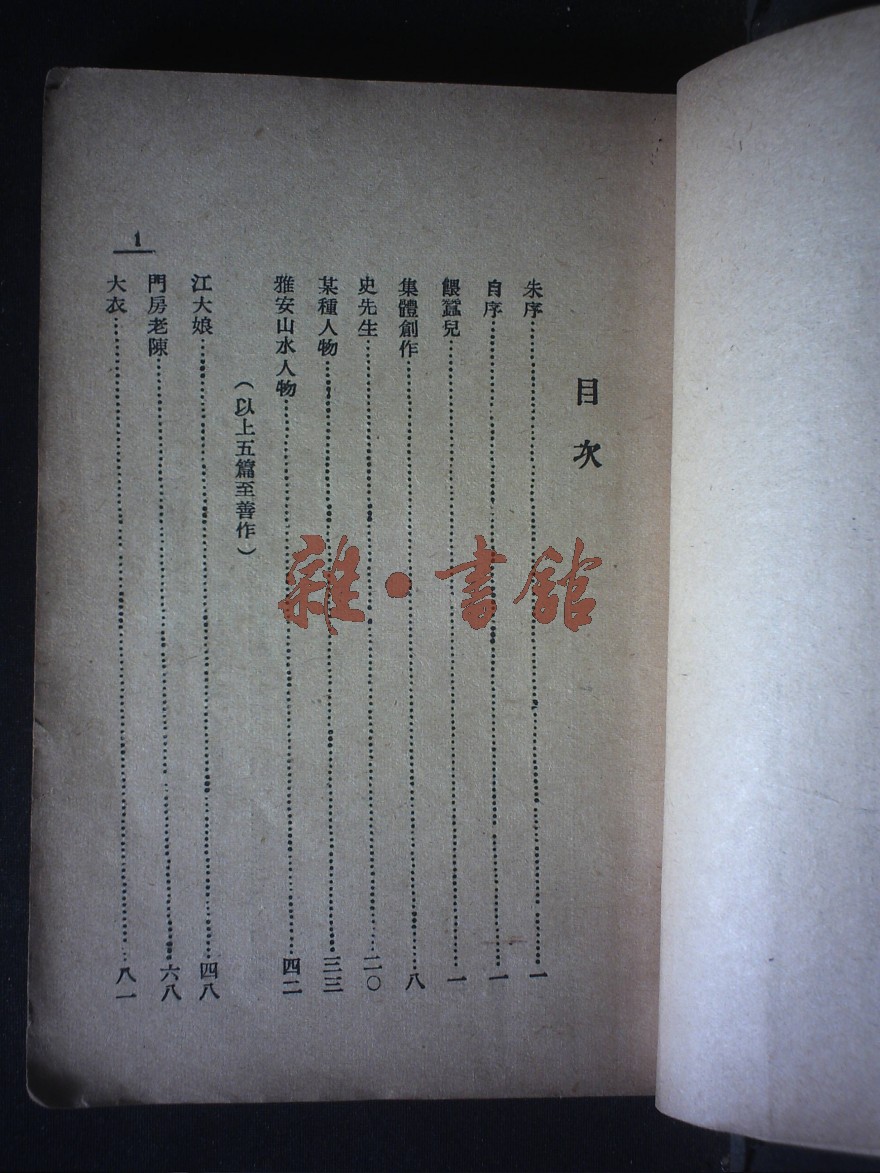 目次
朱序…………一
自序…………一
餵蠶兒…………一
集體創作…………八
史先生…………二〇
某種人物…………三三
雅安山水人物…………四二
（以上五篇至善作）
江大娘…………四八
門房老陳…………六八
大衣…………八一
1
雜·書館